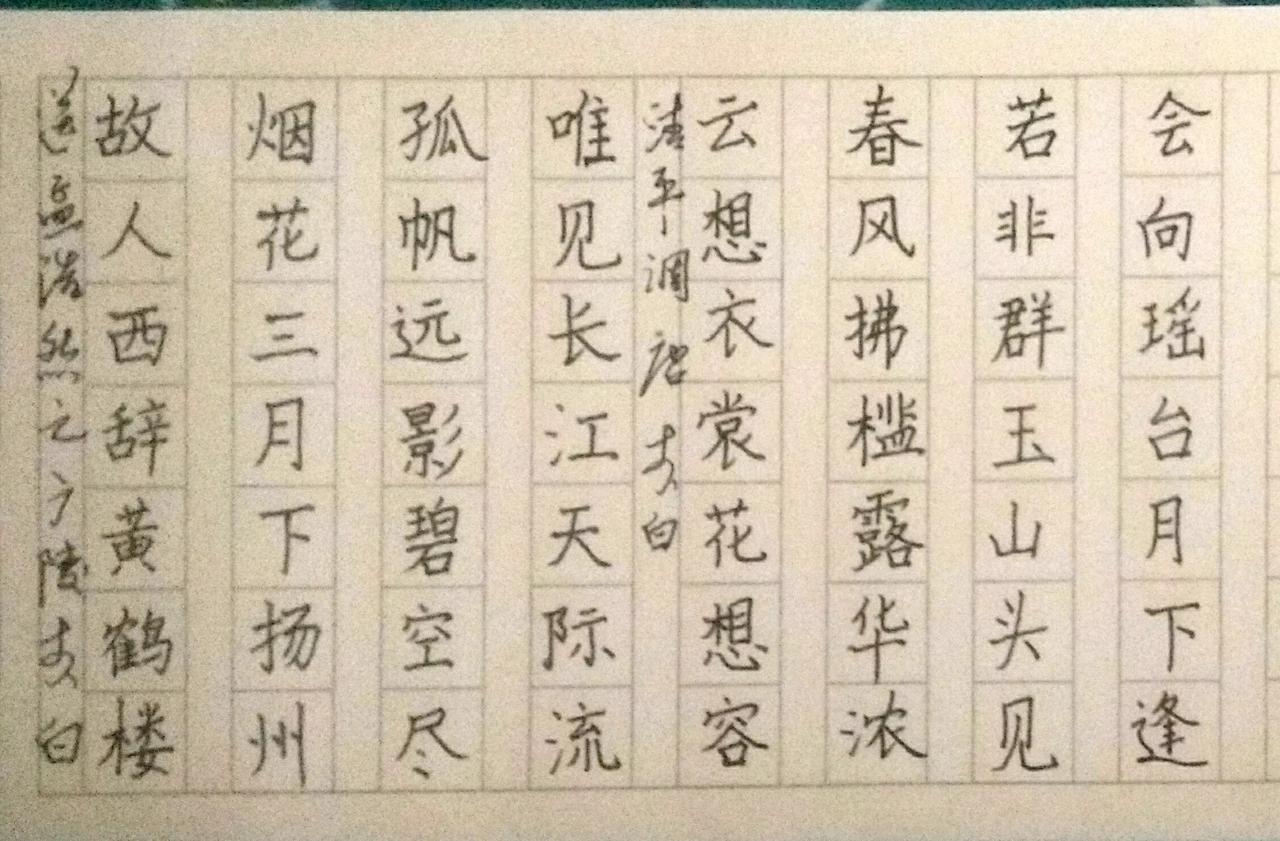 送孟浩然之广陵李白
故人西辞黄鹤楼
烟花三月下扬州
孤帆远影碧空尽
唯见长江天际流
清平调 唐 李白
云想衣裳花想容
春风拂槛露华浓
若非群玉山头见
会向瑶台月下逢